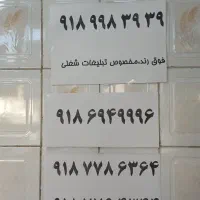 ۹۱۸ ۹۹۸ ۳۹ ۳۹
فوق رند،مخصوص تبلیغات شغلی
۹۱۸ ۶۹۴۹۹۹۶
۹۱۸ ۷۷۸ ۶۳۶۴